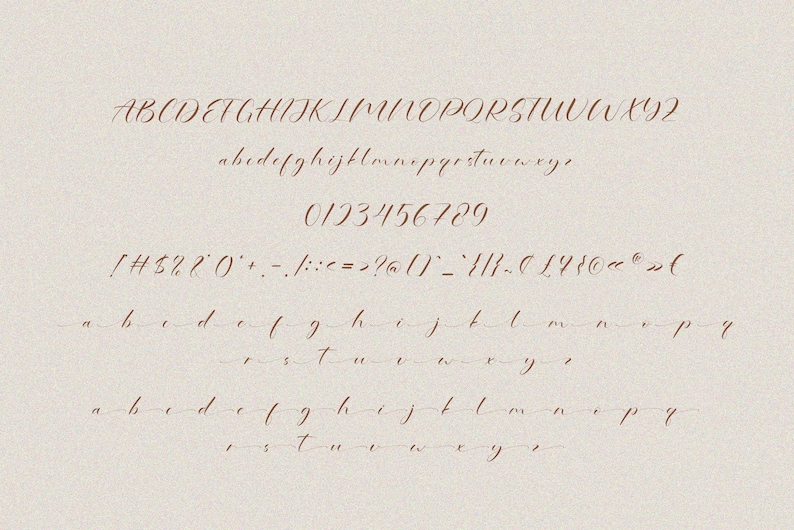 ABCDEFGHIJKLMNOPQRSTUVWXYZ
abcdefghijklmnopqrstuvwxyz
0123456789
!#$%&'()*+,-./:;<=>?@[\]^_`{|}~¢£¥§©«®»€
a b c d e f g h i j k l m n o p q
r s t u v w x y z
a b c d e f g h i j k l m n o p q
r s t u v w x y z